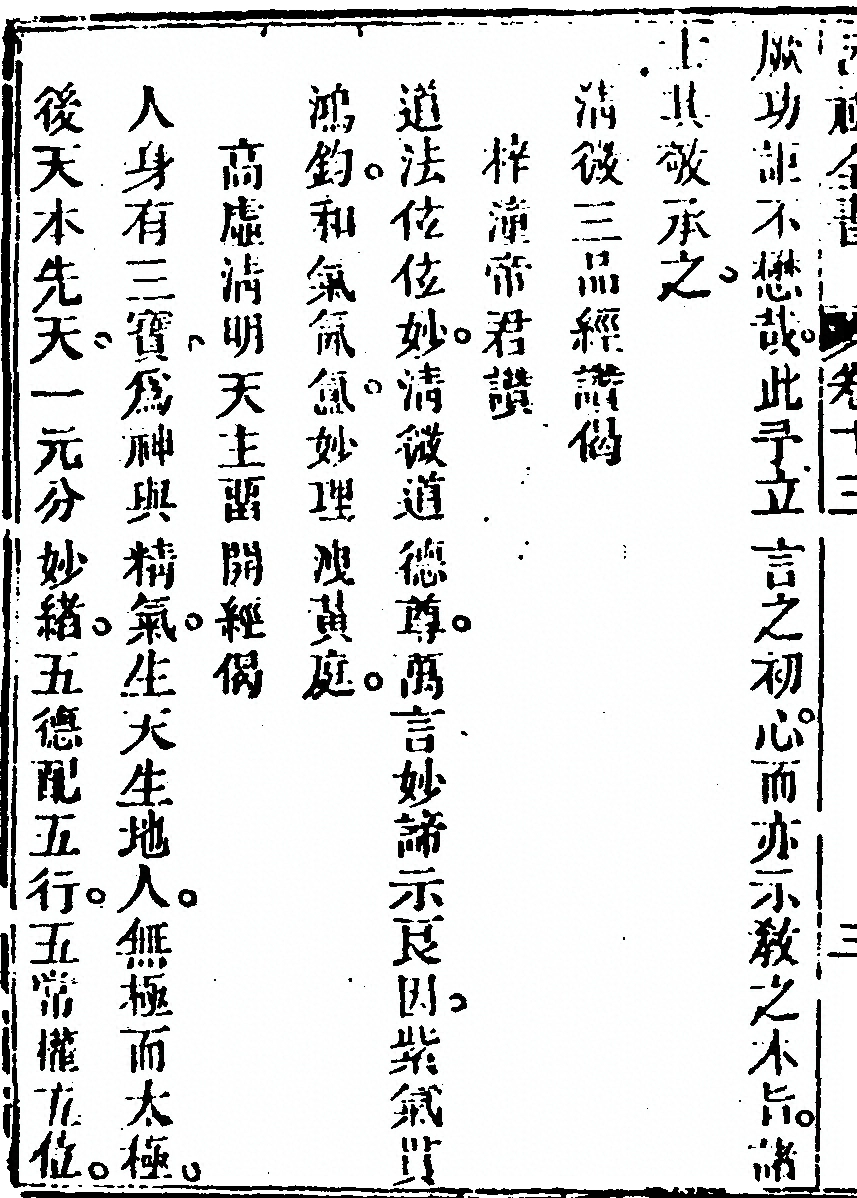 全書 卷十三 三
厥功詎不懋哉此予立言之初心而亦示教之本旨諸
士其敬承之
清微三品經讚偈
梓潼帝君讚
道法位位妙清微道德尊萬言妙諦示良因紫氣貫
鴻鈞和氣氤氳妙理洩黃庭
高虛清明天主留開經偈
人身有三寶為神與精氣生天生地人無極而太極
後天本先天一元分妙緒五德配五行五常權五位